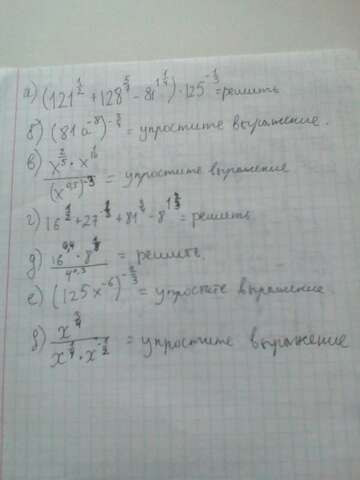 а) (121^{1/2} + 128^{5/7} - 81^{1 1/4}) · 125^{-1/3} = решить
б) (81a^{-8})^{-3/4} = упростите выражение.
в) \frac{x^{2/5} · x^{1/6}}{(x^{0,5})^{-3}} = упростите выражение
г) 16 + 27 + 81^{3/4} - 8 = решить
д) \frac{16^{0,4} · 8}{4^{0,3}} = решить.
е) (125x^{-6})^{-2/3} = упростите выражение.
\frac{x^{3/4}}{x · x} = упростите выражение